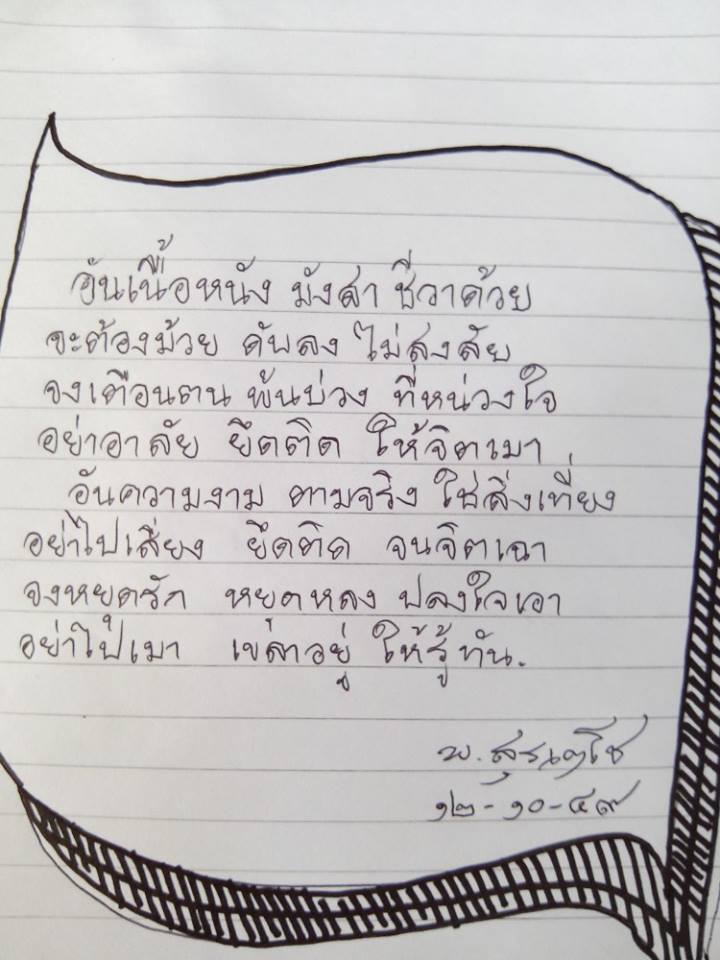 อันเนื้อหนัง มังสา ชีวาด้วย
จะต้องม้วย ดับลง ไม่สงสัย
จงเตือนตน พ้นบ่วง ที่หน่วงใจ
อย่าอาลัย ยึดติด ให้จิตเมา
อันความงาม ตามจริง ใช่สิ่งเที่ยง
อย่าไปเสี่ยง ยึดติด จนจิตเฉา
จงหยุดรัก หยุดหลง ปลงใจเอา
อย่าไปเมา เขลาอยู่ ให้รู้ทัน.
พ. สุรเตโช
๑๒-๑๐-๔๙